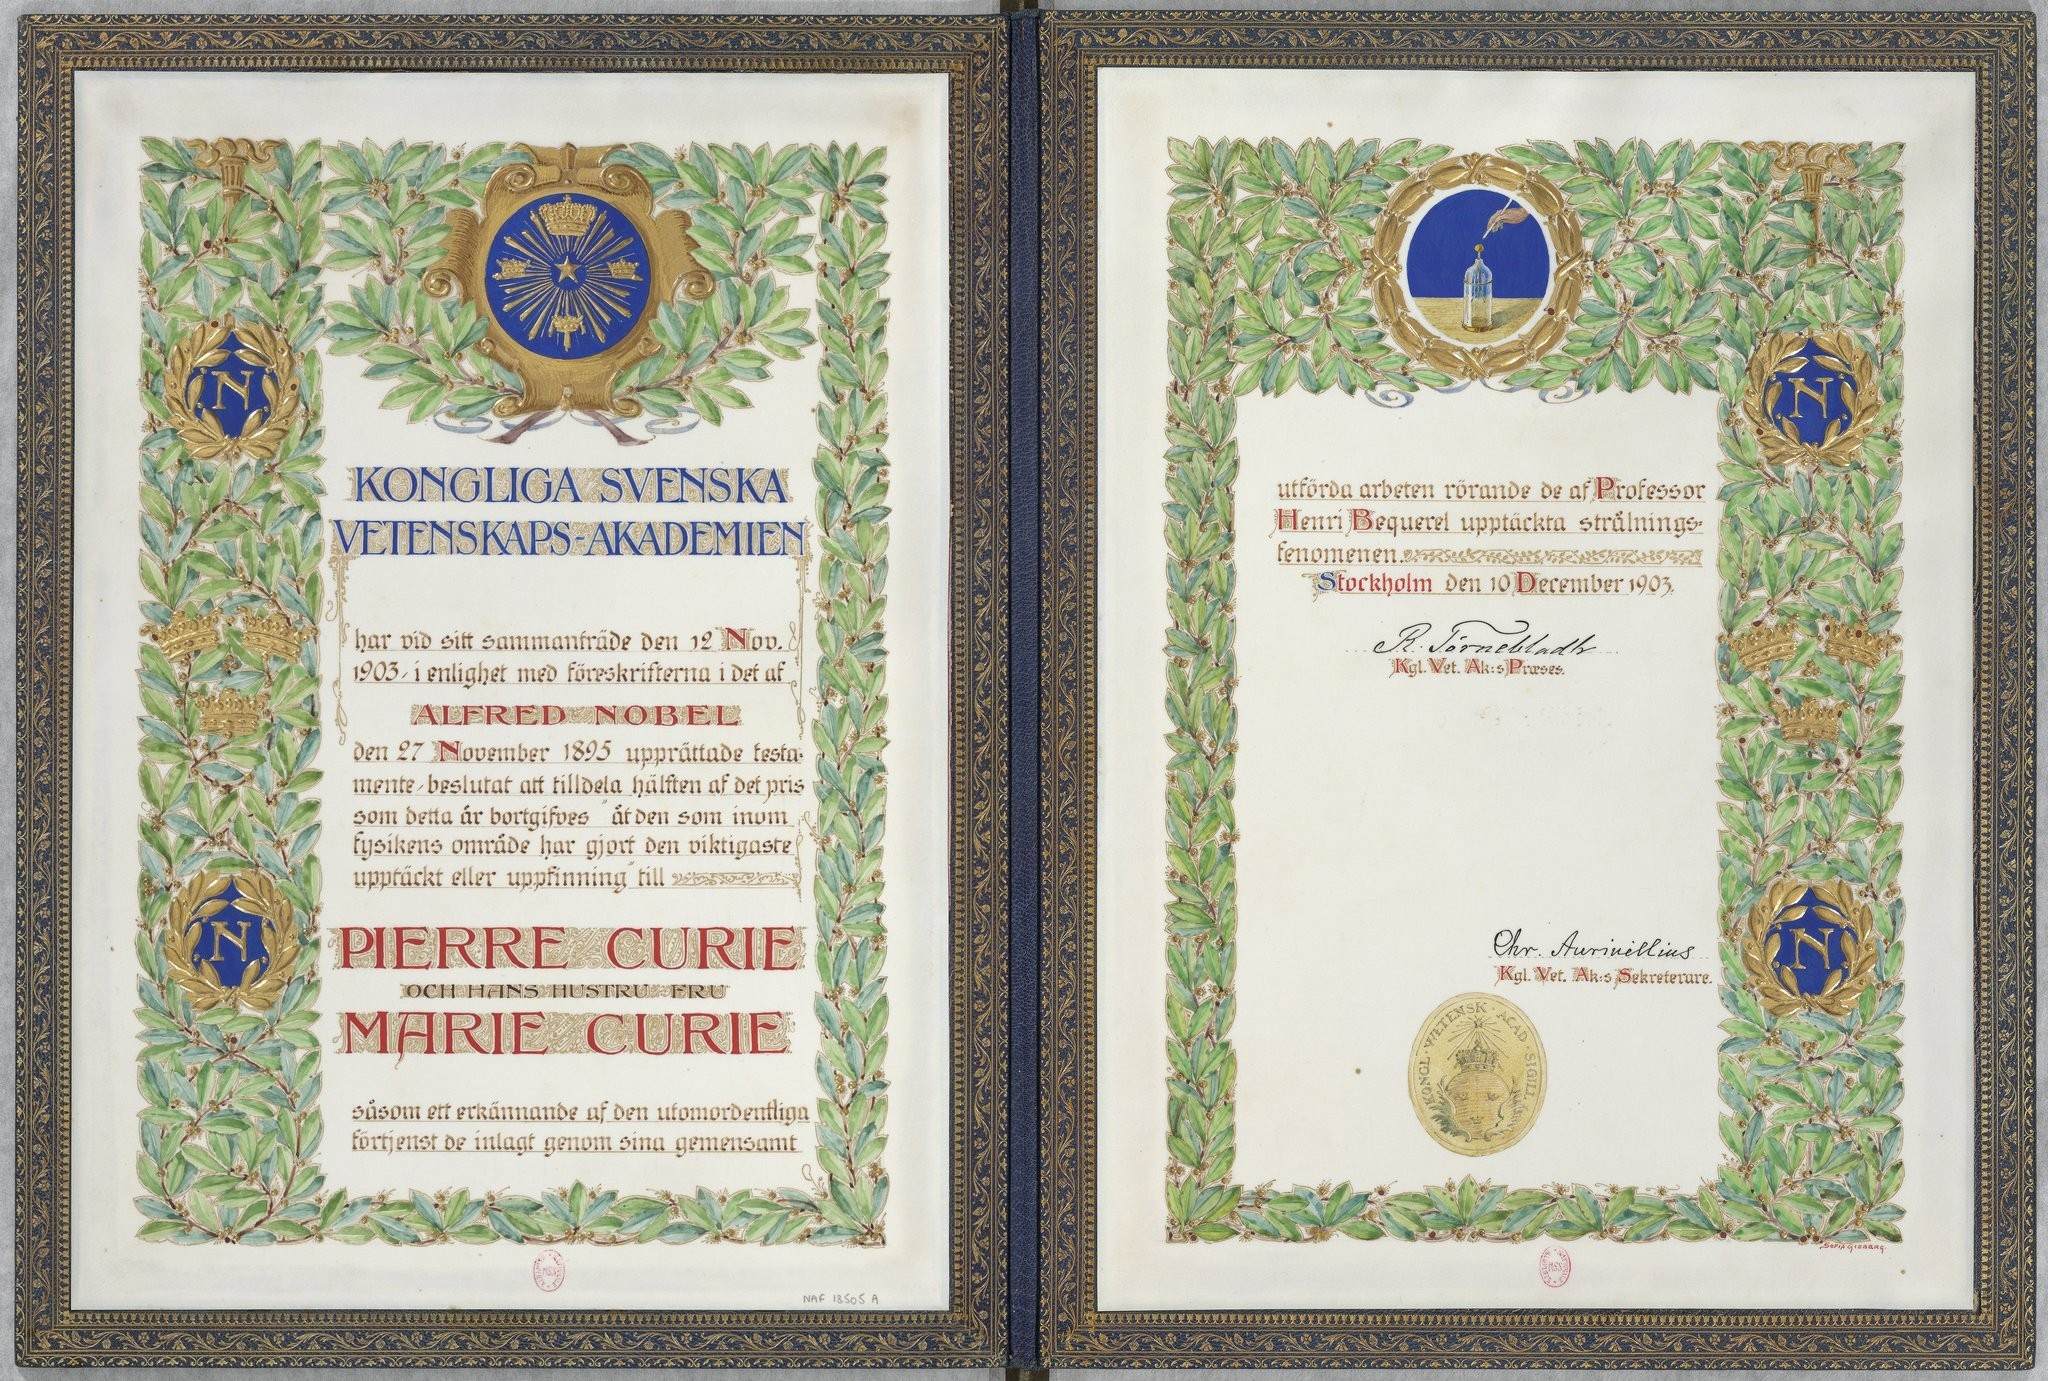 N
KONGLIGA SVENSKA
VETENSKAPS-AKADEMIEN
har vid sitt sammanträde den 12 Nov.
1903, i enlighet med föreskrifterna i det af
ALFRED NOBEL
den 27 November 1895 upprättade testa-
mente, beslutat att tilldela hälften af det pris
som detta år bortgifves "åt den som inom
fysikens område har gjort den viktigaste
upptäckt eller uppfinning" till
N
PIERRE CURIE
OCH HANS HUSTRU FRU
MARIE CURIE
såsom ett erkännande af den utomordentliga
förtjenst de inlagt genom sina gemensamt
MSS
NAF 18505 A
N
utförda arbeten rörande de af Professor
Henri Bequerel upptäckta strålnings-
fenomenen.
Stockholm den 10 December 1903.
R. Törnebladh
Kgl. Vet. Ak:s Præses.
N
Chr. Aurivillius
Kgl. Vet. Ak:s Sekreterare.
KONGL. VETENSK. ACAD. SIGILL
SOFIA GISBERG.
MSS